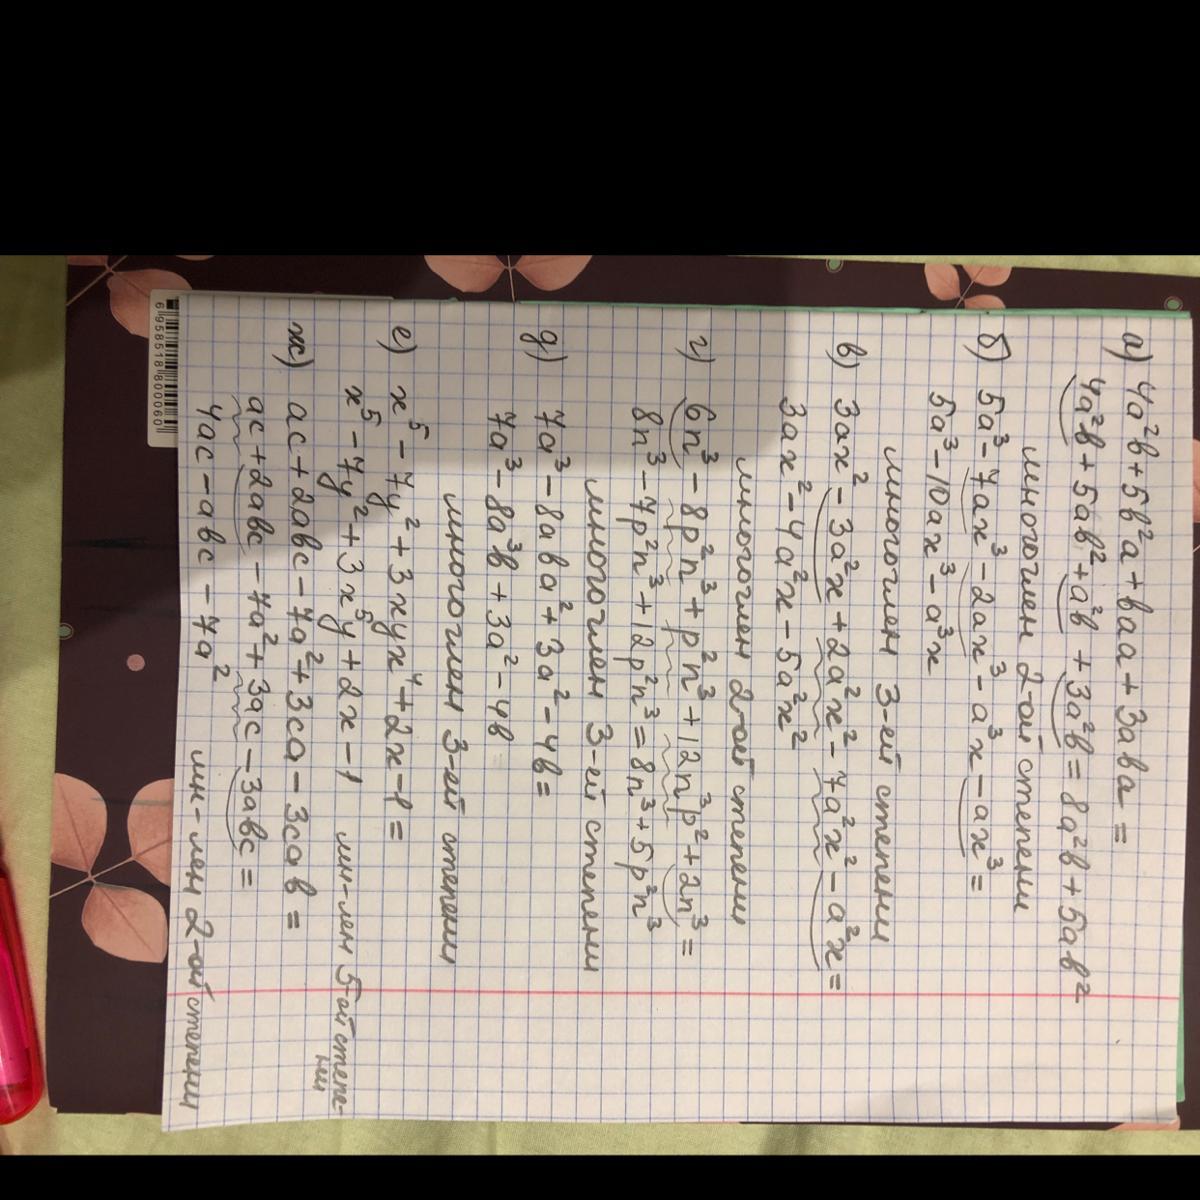 а) 4a²b + 5b²a + baa + 3aba =
4a²b + 5ab² + a²b + 3a²b = 8a²b + 5ab²
многочлен 2-ой степени
б) 5a³ - 7ax³ - 2ax³ - a³x - ax³ =
5a³ - 10ax³ - a³x
многочлен 3-ей степени
в) 3ax² - 3a²x + 2a²x² - 7a²x² - a²x =
3ax² - 4a²x - 5a²x²
многочлен 2-ой степени
г) 6n³ - 8p²n³ + p²n³ + 12n³p² + 2n³ =
8n³ - 7p²n³ + 12p²n³ = 8n³ + 5p²n³
многочлен 3-ей степени
д) 7a³ - 8aba² + 3a² - 4b =
7a³ - 8a³b + 3a² - 4b
многочлен 3-ей степени
е) x⁵ - 7y² + 3xyx⁴ + 2x - 1 =
x⁵ - 7y² + 3x⁵y + 2x - 1 мн-лен 5-ой степе-
ни
ж) ac + 2abc - 7a² + 3ca - 3cab =
ac + 2abc - 7a² + 3ac - 3abc =
4ac - abc - 7a² мн-лен 2-ой степени
6958518800060